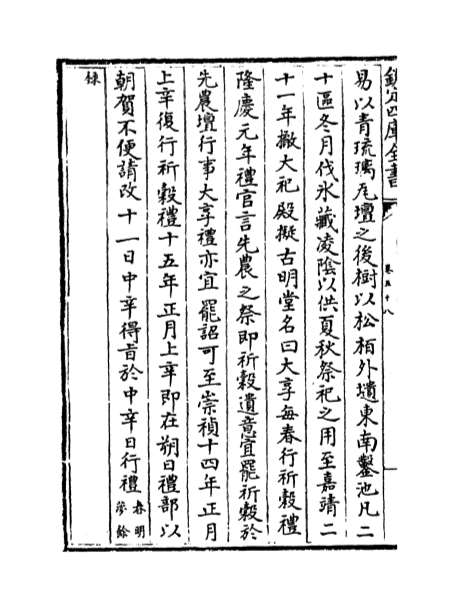 欽定四庫全書
卷五十八
易以青琉璃瓦壇之後樹以松栢外壝東南鑿池凡二
十區冬月伐氷藏凌陰以供夏秋祭祀之用至嘉靖二
十一年撤大祀殿擬古明堂名曰大享每春行祈穀禮
隆慶元年禮官言先農之祭即祈穀遺意宜罷祈穀於
先農壇行事大享禮亦宜罷詔可至崇禎十四年正月
上辛復行祈穀禮十五年正月上辛即在朔日禮部以
朝賀不便請改十一日中辛得旨於中辛日行禮春明
夢餘
錄